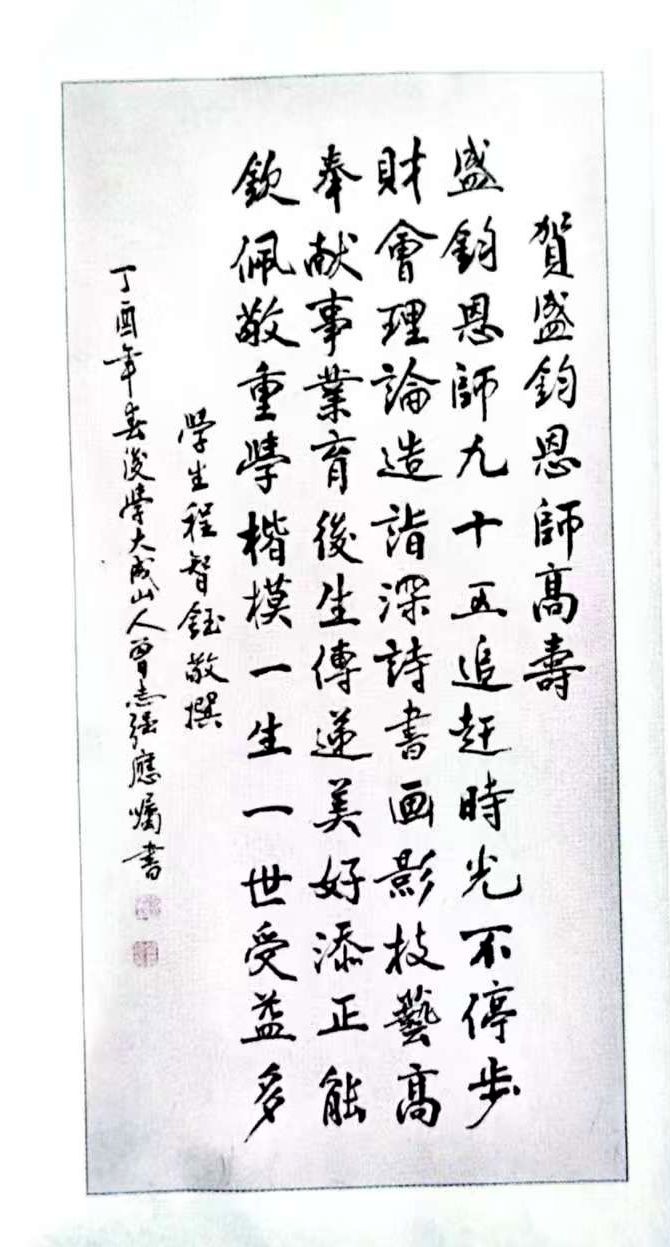 賀盛鈞恩師高壽
盛鈞恩師九十五追赶時光不停步
財會理論造詣深詩書画影技藝高
奉献事業育後生傳递美好添正能
欽佩敬重學楷模一生一世受益多
學生程智鈺敬撰
丁酉年春後學大成山人曾志强應囑書